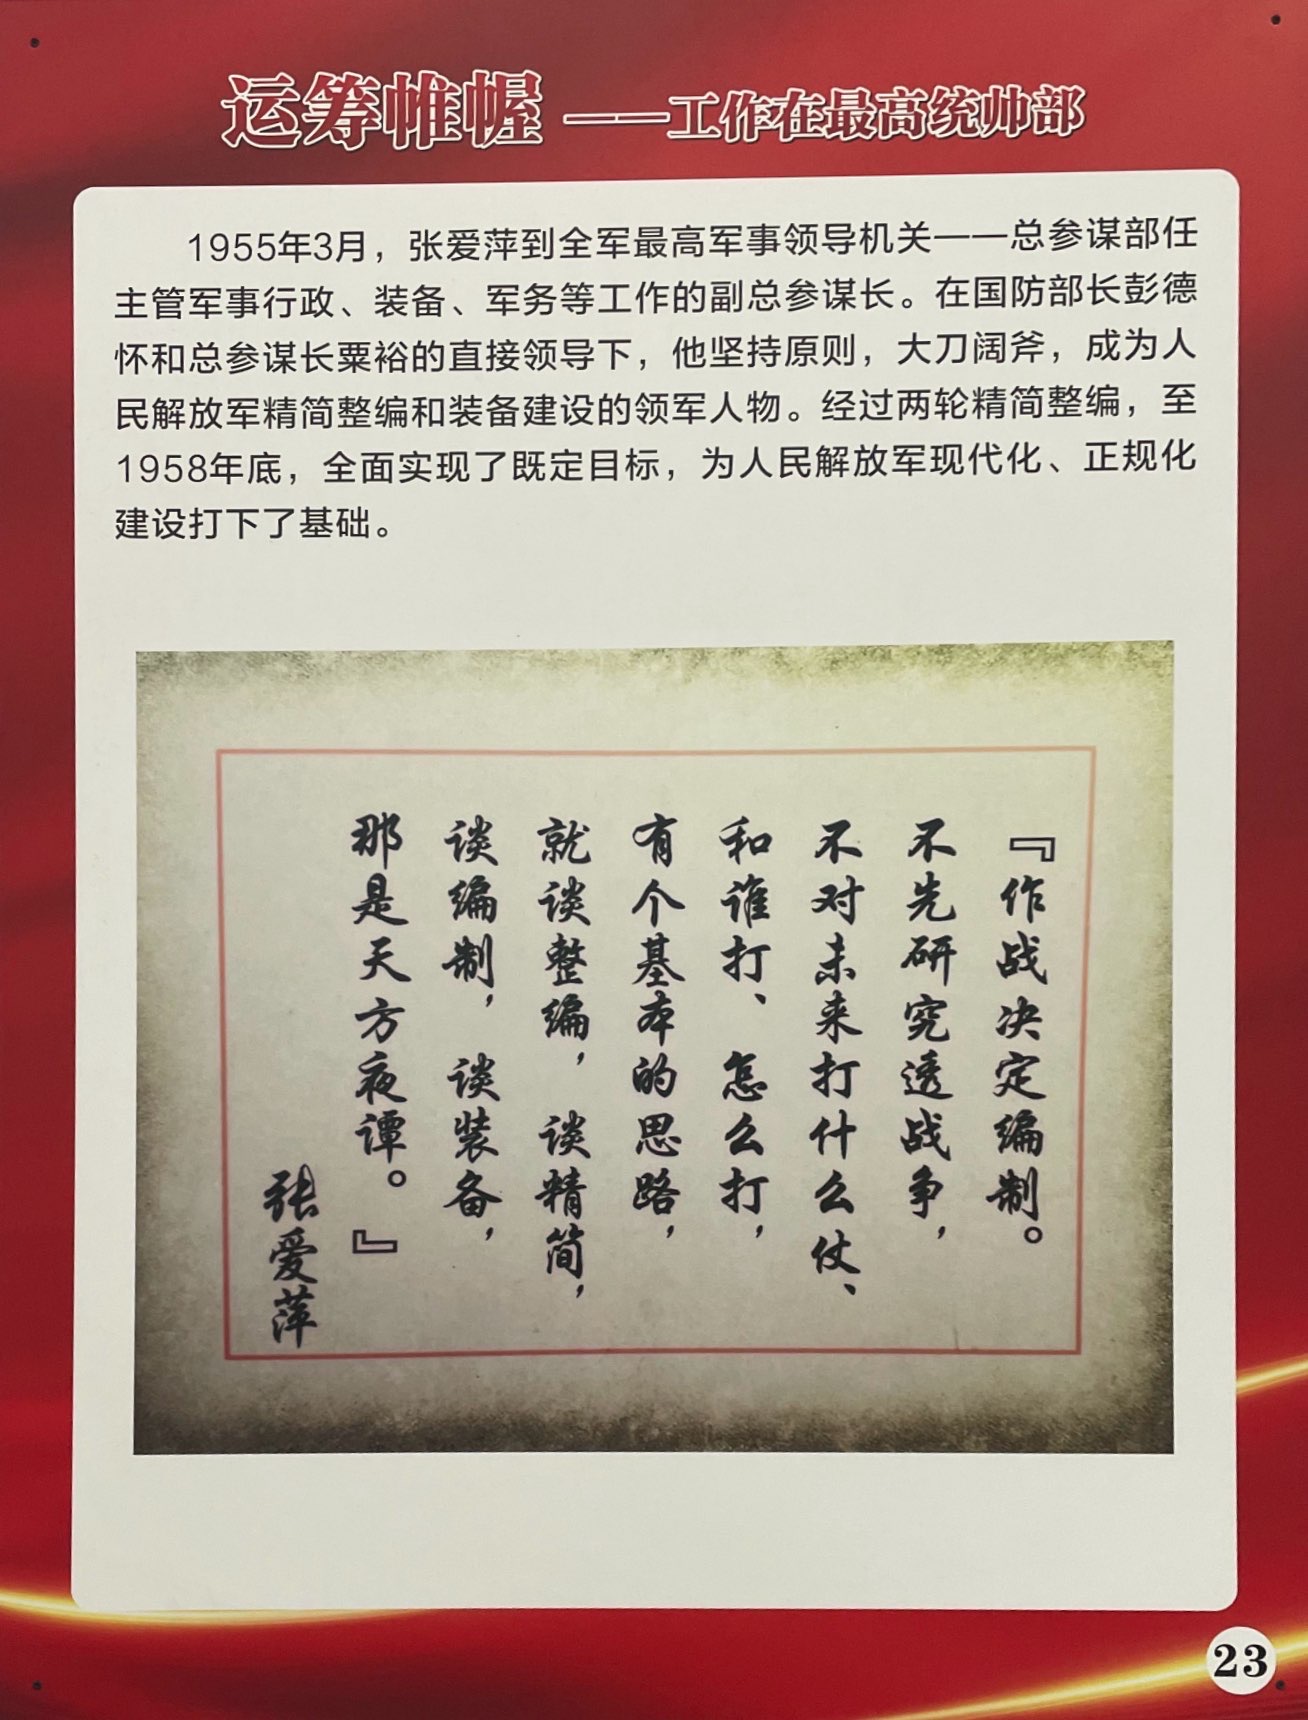 运筹帷幄 ——工作在最高统帅部
1955年3月，张爱萍到全军最高军事领导机关——总参谋部任
主管军事行政、装备、军务等工作的副总参谋长。在国防部长彭德
怀和总参谋长粟裕的直接领导下，他坚持原则，大刀阔斧，成为人
民解放军精简整编和装备建设的领军人物。经过两轮精简整编，至
1958年底，全面实现了既定目标，为人民解放军现代化、正规化
建设打下了基础。
『作战决定编制。
不先研究透战争，
不对未来打什么仗、
和谁打、怎么打，
有个基本的思路，
就谈整编，谈精简，
谈编制，谈装备，
那是天方夜谭。』
张爱萍
23